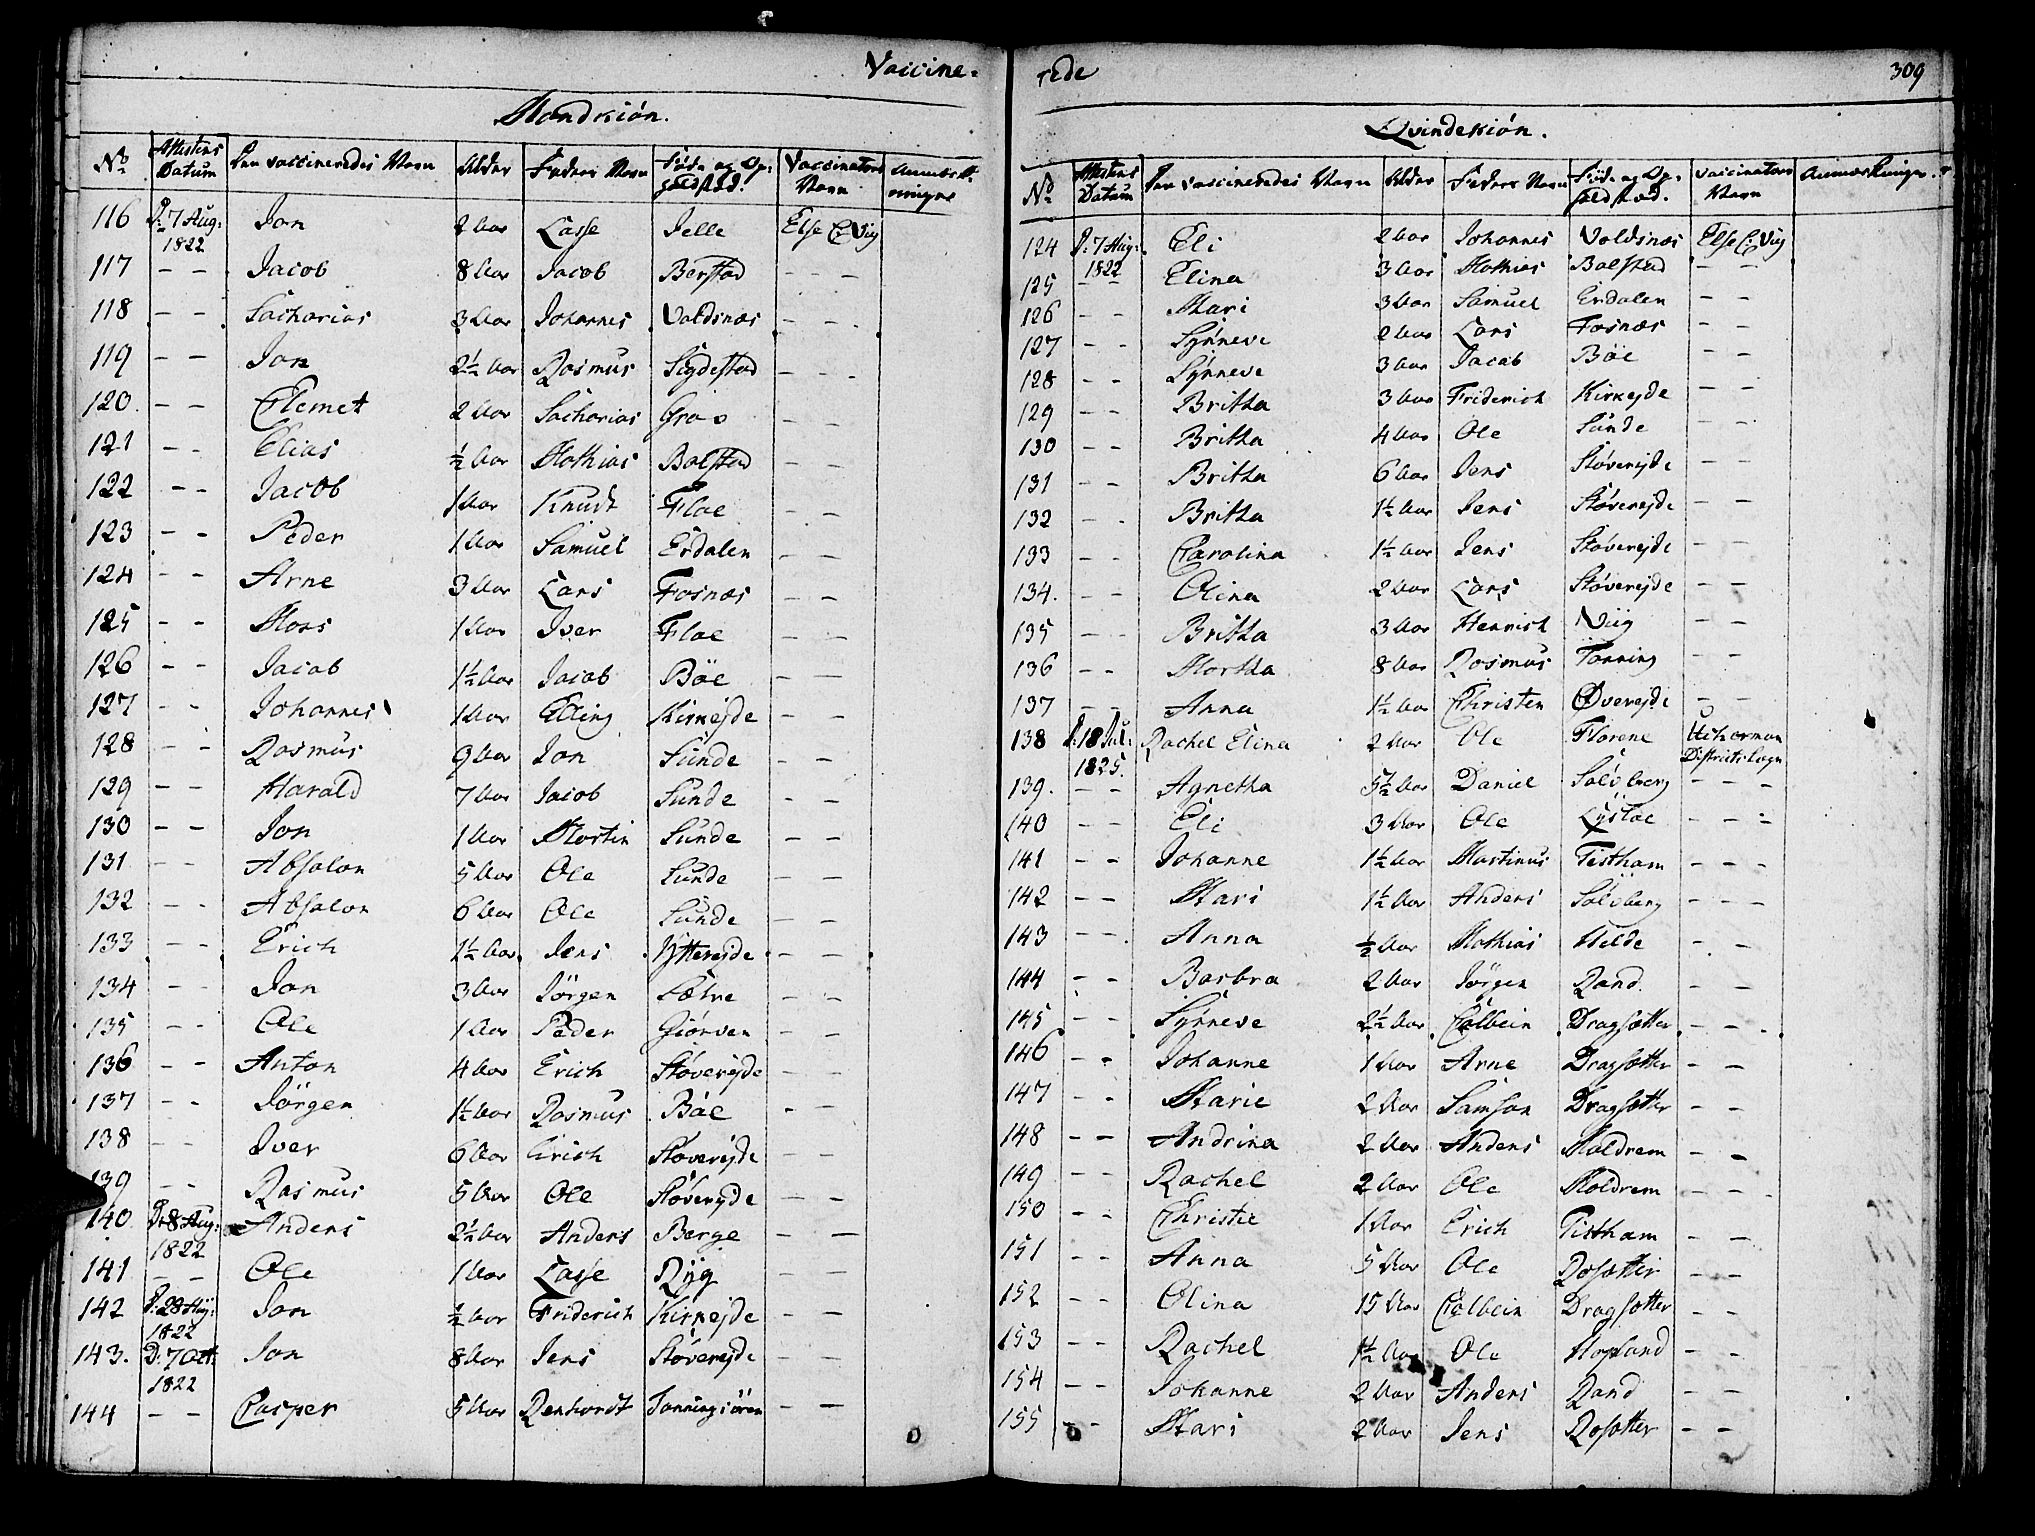 Vaccine=
Mandkiøn.
No. Attestens Datum Den vaccineredes Navn Alder Faders Navn Føde og Op: holdsted. Vaccinators Navn Anmærk- ninger
116 D: 7 Aug: 1822 Jon 2 Aar Lasse Jelle Else C. Vig
117 - - Jacob 8 Aar Jacob Berstad - - -
118 - - Sacharias 3 Aar Johannes Valdsnæs - - -
119 - - Jon 2½ Aar Rasmus Sigdestad - - -
120. - - Clemet 2 Aar Sacharias Gras - -
121 - - Elias ½ Aar Mathias Balstad - -
122 - - Jacob 1 Aar Knudt Floe - -
123 - - Peder 1 Aar Samuel Erdalen - -
124 - - Arne 3 Aar Lars Fosnæs - -
125 - - Mons 1 Aar Iver Floe - -
126 - - Jacob 1½ Aar Jacob Böe - -
127 - - Johannes 1 Aar Elling Kirkejde - -
128 - - Rasmus 9 Aar Jon Sunde - -
129 - - Harald 7 Aar Jacob Sunde - -
130 - - Jon 1 Aar Mortin Sunde - -
131 - - Absalon 5 Aar Ole Sunde - -
132 - - Absalon 6 Aar Ole Sunde - -
133 - - Erich 1½ Aar. Jens Ytterejde - -
134 - - Jon 3 Aar Jörgen Sætre - -
135 - - Ole 1 Aar Peder Giörven - -
136 - - Anton 4 Aar Erich Støverejde - -
137 - - Jörgen 1½ Aar Rasmus Böe - -
138 - - Iver 6 Aar Erich Støverejde - -
139 - - Rasmus 5 Aar Ole Støverejde - -
140. D: 8 Aug: 1822 Anders 2½ Aar Anders Berge - -
141 - - Ole 1 Aar Lasse Ryg - -
142 D: 28 Aug: 1822 Jon ½ Aar Friderich Kirkejde - -
143. D. 7 Oct: 1822 Jon 8 Aar Jens Støverejde - -
144 - - Casper 5 Aar Renhardt Tonningsören - -
rede 309
Qvindekiøn.
No. Attestens Datum Den vaccineredes Navn Alder Faders Navn Føde og Op- holdsted. Vaccinators Navn Anmærkninger.
124 D: 7 Aug: 1822 Eli 2 Aar Johannes Valdsnæs Else C: Vig
125 - - Elina 3 Aar Mathias Balstad - -
126 - - Mari 3 Aar Samuel Erdalen - -
127 - - Synneve 2 Aar Lars Fosnæs - -
128 - - Synneve 3 Aar Jacob Böe - -
129 - - Britha 3 Aar Friderich Kirkejde - -
130 - - Britha 4 Aar Ole Sunde - -
131 - - Britha 6 Aar Jens Støverejde - -
132 - - Britha 1½ Aar Jens Støverejde - -
133 - - Carolina 1½ Aar Jens Støverejde - -
134. - - Olina 2 Aar Lars Støverejde - -
135 - - Britha 3 Aar Henrich Viig - -
136 - - Martha 8 Aar Rasmus Tonning - -
137 - - Anna 1½ Aar Christen Øverejde - -
138 D: 18 Jul: 1825. Rachel Elina 2 Aar Ole Florene Ucherman Districtslæge
139. - - Agnetha 5½ Aar Daniel Sølvberg - - -
140 - - Eli 3 Aar Ole Lystoe - - -
141 - - Johanne 1½ Aar Martinus Tistham - - -
142 - - Mari 1½ Aar Anders Sølvberg - -
143 - - Anna ½ Aar Mathias Hilde - -
144 - - Barbra 2 Aar Jörgen Rand - -
145 - - Synneve 2½ Aar Colbein Dragsætter - - -
146 - - Johanne 1 Aar Arne Dragsætter - -
147 - - Marie 2 Aar Samson Dragsætter - -
148 - - Andrina 2 Aar Anders Maldrem - -
149 - - Rachel 2 Aar Ole Maldrem - - -
150 - - Christie 1 Aar Erich Tistham - -
151 - - Anna 5 Aar Ole Rosætter - -
152 - - Olina 15 Aar Colbein Dragsætter - -
153 - - Rachel 1½ Aar Ole Hopland - -
154 - - Johanne 2 Aar Anders Rand - -
155 - - Mari 2 Aar Jens Rosætter - -